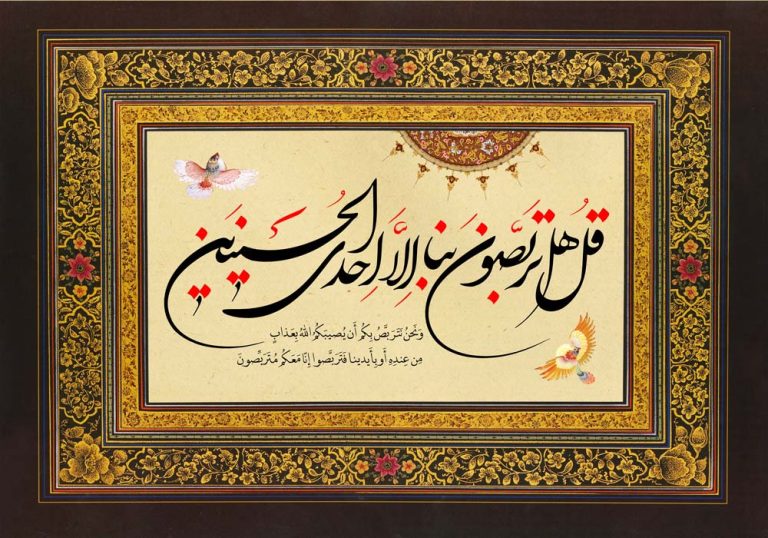 قُل هَل تَرَبَّصُونَ بِنا اِلاَّ اِحدَی الحُسنَیَینِ
وَنَحنُ نَتَرَبَّصُ بِكُم أَن يُصيبَكُمُ اللّهُ بِعَذابٍ
مِن عِندِهِ أَو بِأَيدينا فَتَرَبَّصوا إِنّا مَعَكُم مُتَرَبِّصونَ